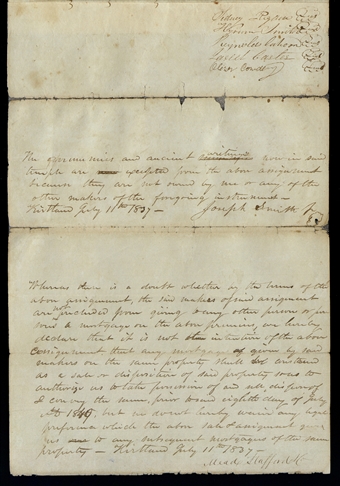 Sidney Rigdon
Hyrum Smith
Reynolds Cahoon
Jared Carter
Oliver Cowdery
The egyptian mummies and ancient writings now in said
temple are excepted from the above assignment
because they are not owned by me or any of the
other makers of the foregoing instrument —
Kirtland July 11th 1837 — Joseph Smith Jr
Whereas there is a doubt whether in the terms of the
above assignment, the said makers of said assignment
are not precluded from giving any other person or per
sons a mortgage on the above premises, we hereby
declare that it is not the intention of the above
assignment that any mortgage given by said
makers on the same property shall be construed
as a sale or disposition of said property so as to
authorize us to take possession of and sell, dispose of
& convey the same, prior to said eighth day of July
AD 1840, but we do not hereby waive any legal
preference which the above sale & assignment gives
us to any subsequent mortgages of the same
property — Kirtland July 11th 1837
Mead Stafford & Co